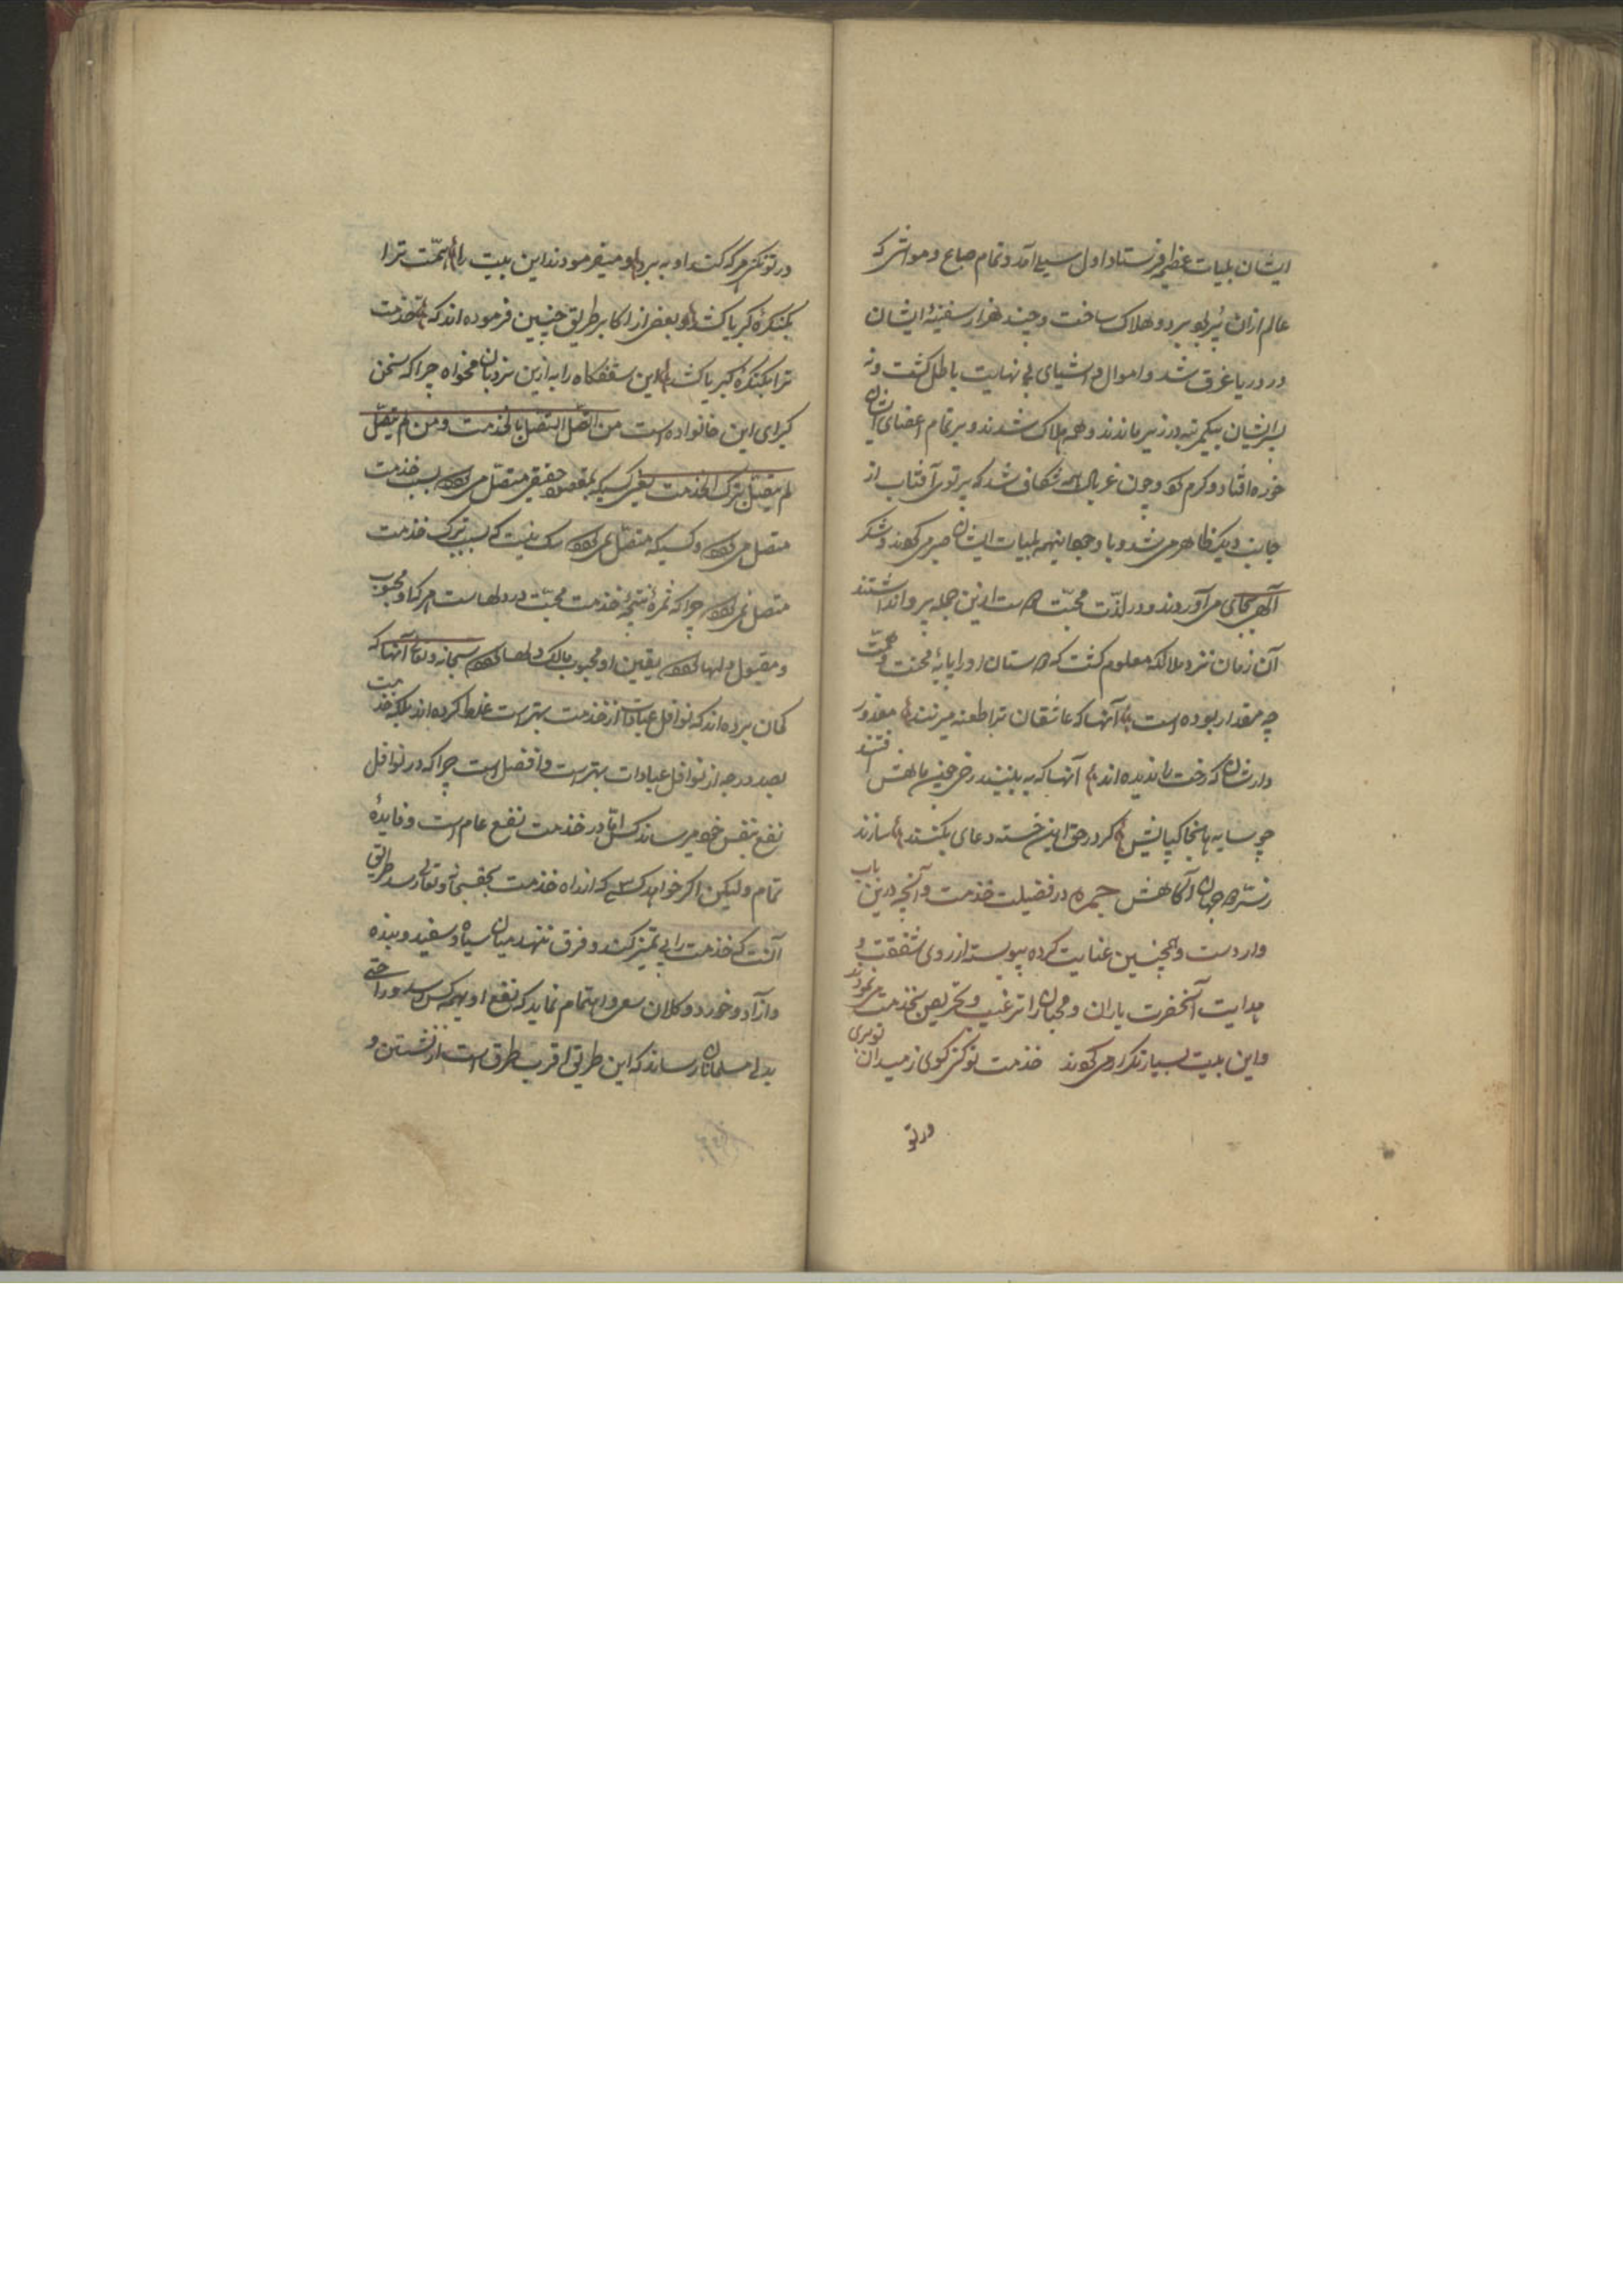 ایشان بلیات عظیمه فرستاد اول سیلی آمد و تمام صباع و مواشی که
عالم ازان پر بود ببرد و هلاک ساخت و چند هزار سفینهٔ ایشان
در دریا غرق شد و اموال و اشیای بی نهایت باطل گشت و نه
پسر ایشان بیکمرتبه در زیر ماندند و همه هلاک شدند و بر تمام اعضای ایشان
خوره افتاد و کرم و چون غربال شکاف شد که پرتوی آفتاب از
جانب دیگر ظاهر می شد و با وجود اینهمه بلیات ایشان صبر می کردند و شکر
الهی بجای می آوردند و در لذّت محبّت دوست ازین جمله پروا نداشتند
آن زمان نزد ملائکه معلوم گشت که دوستان او را پایهٔ محنت و محبّت
چه مقدار بوده است آنها که عاشقان ترا طعنه میزنند معذور
دارشان که رخت را ندیده اند آنها که به بینند رخی چنین مهش افتند
چو سایه بخاکپایش گر در حق این خسته دعای بکنند سازند
ز سرّ دو جهان آگاهش جمره در فضیلت خدمت و آنچه درین باب
واردست و همچنین عنایت کرده پیوسته از روی شفقت و
هدایت آنحضرت یاران و محبان را ترغیب و تحریص بخدمت می نمودند
و این بیت بسیار تکرار می کردند خدمت تو کن گوی ز میدان تو بری
ور تو
ور تو نکنی هر که کند او ببرد و میفرمودند این بیت را همّت ترا
بکنگرهٔ کبریا کشد و بعضی از اکابر طریق چنین فرموده اند که خدمت
ترا بکنگرهٔ کبریا کشد این سقفگاه را به ازین نردبان مخواه چرا که سخن
کبرای این خانواده است من اتّصل اتصل بالخدمت و من لم یتّصل
لم یتصل بترک الخدمت یعنی کسیکه بمقصود حقیقی متصل می بسبب خدمت
متصل می و کسیکه متصل نمی شک نیست که بسبب ترک خدمت
متصل نمی چرا که ثمرهٔ نتیجهٔ خدمت محبّت در دلهاست هر که او محبوب
و مقبول دلها یقین او محبوب مالک دلها سبحانه و تعالی آنها که
گمان برده اند که نوافل عبادات از خدمت بهترست غلط کرده اند بلکه خدمت
بصد درجه از نوافل عبادات بهترست و افضل است چرا که در نوافل
نفع بنفس خود میرساند کس امّا در خدمت نفع عام است و فایدهٔ
تمام و لیکن اگر خواهد کسی که از راه خدمت بحق سبحانه و تعالی رسد طریق
آنست که خدمت را بی تمیز کند و فرق ننهد میان سیاه و سفید و بنده
و آزاد و خورد و کلان سعی و اهتمام نماید که نفع او بهمه کس رسد و راحتی
بدلی مسلمانان رساند که این طریق اقرب طرق است از نشستن و